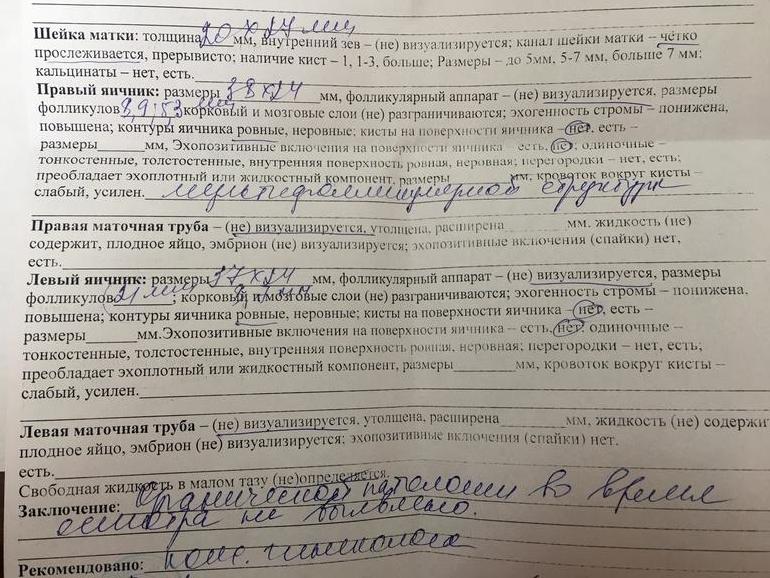 Шейка матки: толщина 20 х 27 мм мм, внутренний зев – (не) визуализируется; канал шейки матки – чётко
прослеживается, прерывисто; наличие кист – 1, 1-3, больше; Размеры – до 5мм, 5-7 мм, больше 7 мм;
кальцинаты – нет, есть.
Правый яичник: размеры 38х24 мм, фолликулярный аппарат – (не) визуализируется, размеры
фолликулов мм корковый и мозговые слои (не) разграничиваются; эхогенность стромы – понижена,
повышена; контуры яичника ровные, неровные; кисты на поверхности яичника – нет, есть –
размеры______мм, Эхопозитивные включения на поверхности яичника – есть, нет; одиночные –
тонкостенные, толстостенные, внутренняя поверхность ровная, неровная; перегородки – нет, есть;
преобладает эхоплотный или жидкостный компонент, размеры________мм, кровоток вокруг кисты –
слабый, усилен. мультифолликулярной структуры
Правая маточная труба – (не) визуализируется, утолщена, расширена________мм. жидкость (не)
содержит, плодное яйцо, эмбрион (не) визуализируется; эхопозитивные включения (спайки) нет,
есть.
Левый яичник: размеры 37х24 мм, фолликулярный аппарат – (не) визуализируется, размеры
фолликулов 21 мм; корковый и мозговые слои (не) разграничиваются; эхогенность стромы – понижена,
повышена; контуры яичника ровные, неровные; кисты на поверхности яичника – нет, есть –
размеры______мм.Эхопозитивные включения на поверхности яичника – есть, нет; одиночные –
тонкостенные, толстостенные, внутренняя поверхность ровная, неровная; перегородки – нет, есть;
преобладает эхоплотный или жидкостный компонент, размеры________мм, кровоток вокруг кисты –
слабый, усилен.
Левая маточная труба – (не) визуализируется, утолщена, расширена________мм, жидкость (не) содержит
плодное яйцо, эмбрион (не) визуализируется; эхопозитивные включения (спайки) нет.
есть.
Свободная жидкость в малом тазу (не)определяется.
Заключение: органической патологии во время
осмотра не выявлено.
Рекомендовано: конс. гинеколога